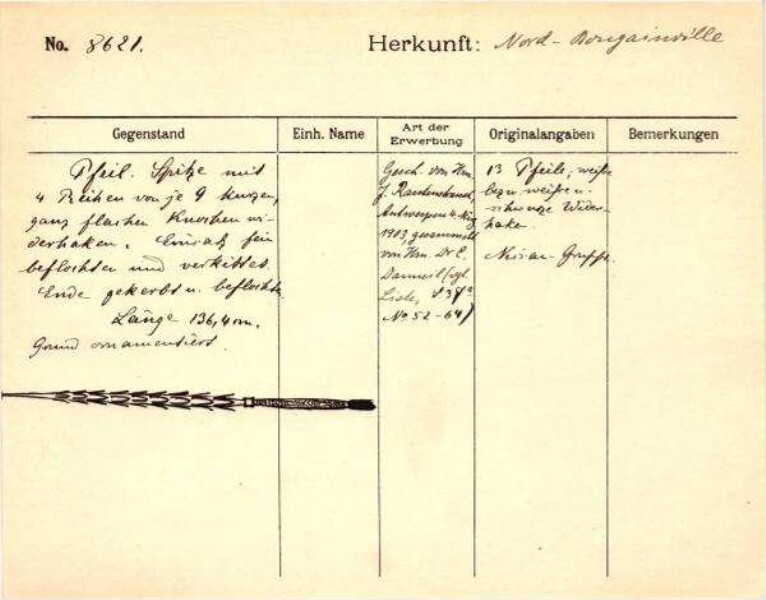 No. 8621.
Herkunft: Nord-Bougainville
Gegenstand
Einh. Name
Art der
Erwerbung
Originalangaben
Bemerkungen
Pfeil. Spitze mit
4 Reihen von je 9 kurzen,
ganz flachen Knochenwi-
derhaken. Einsatz fein
beflochten und verkittet.
Ende gekerbt u. beflochten.
Länge 136,4 cm.
Grund ornamentiert.
Gesch. von Hrn.
J. Rautenstrauch,
Antwerpen
1903, gesammelt
von Hrn. Dr. E.
(vgl.
Liste,
No 52-64)
13 Pfeile, weiße
bezw weiße u.
schwarze Wider-
haken.